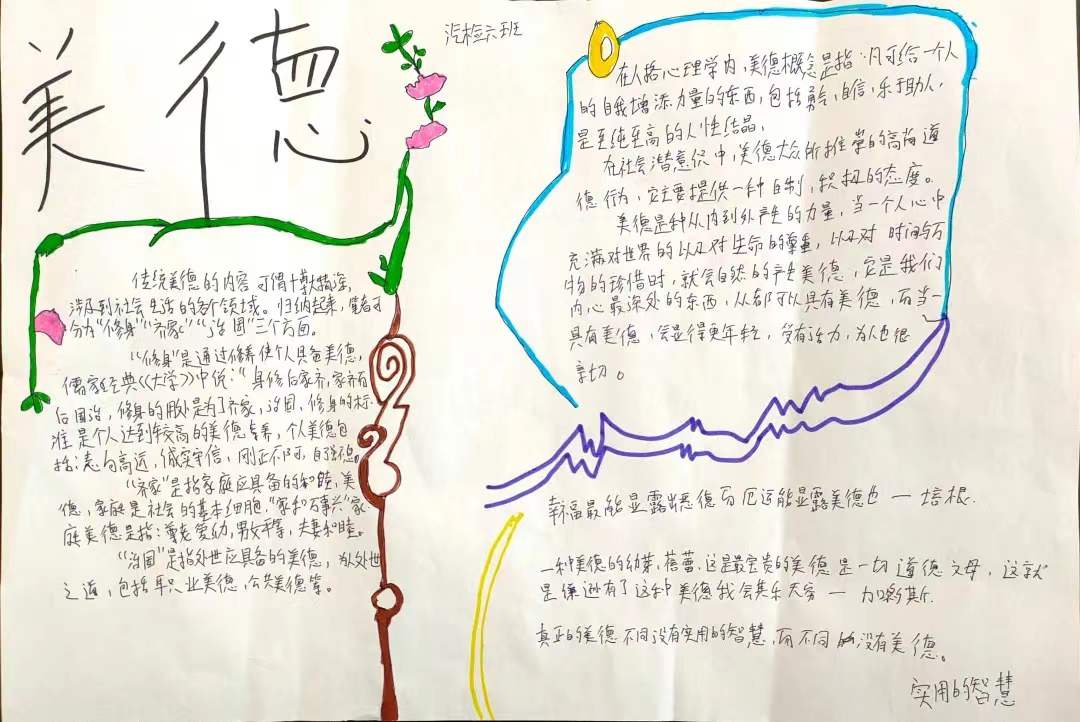 美德
汽检六班
传统美德的内容可谓博大精深,
涉及到社会生活的各个领域。归纳起来,笔者可
分为“修身”“齐家”“治国”三个方面。
“修身”是通过修养使个人具备美德,
儒家经典《大学》中说:“身修后家齐,家齐而
后国治,修身的是为了齐家,治国,修身的标
准是个人达到较高的美德素养,个人美德包
括:志向高远,诚实守信,刚正不阿,自强
“齐家”是指家庭应具备的和睦,美
德,家庭是社会的基本细胞,“家和万事兴”家
庭美德是指:尊老爱幼,男女平等,夫妻和睦。
“治国”是指处世应具备的美德,为人处世
之道,包括职业美德,公共美德等。
在人格心理学内,美德概念是指:凡可给一个人
的自我增添力量的东西,包括勇气,自信,乐于助人,
是至纯至高的人性结晶,
在社会潜意识中,美德大众所推崇的高尚道
德行为,它主要提供一种自制,积极的态度。
美德是种从内到外产生的力量,当一个人心中
充满对世界的以及对生命的尊重,以及对时间与万
物的珍惜时,就会自然的产生美德,它是我们
内心最深处的东西,人都可以具有美德,而当一
具有美德,会显得更年轻,有活力,为人也很
亲切。
幸福最能显露出恶德而厄运能显露美德也一培根.
一种美德的幼芽,蓓蕾,这是最宝贵的美德是一切道德之母,这就
是谦逊有了这种美德我会其乐无穷一加尔斯.
真正的美德不同没有实用的智慧,而不同的没有美德。
实用的智慧